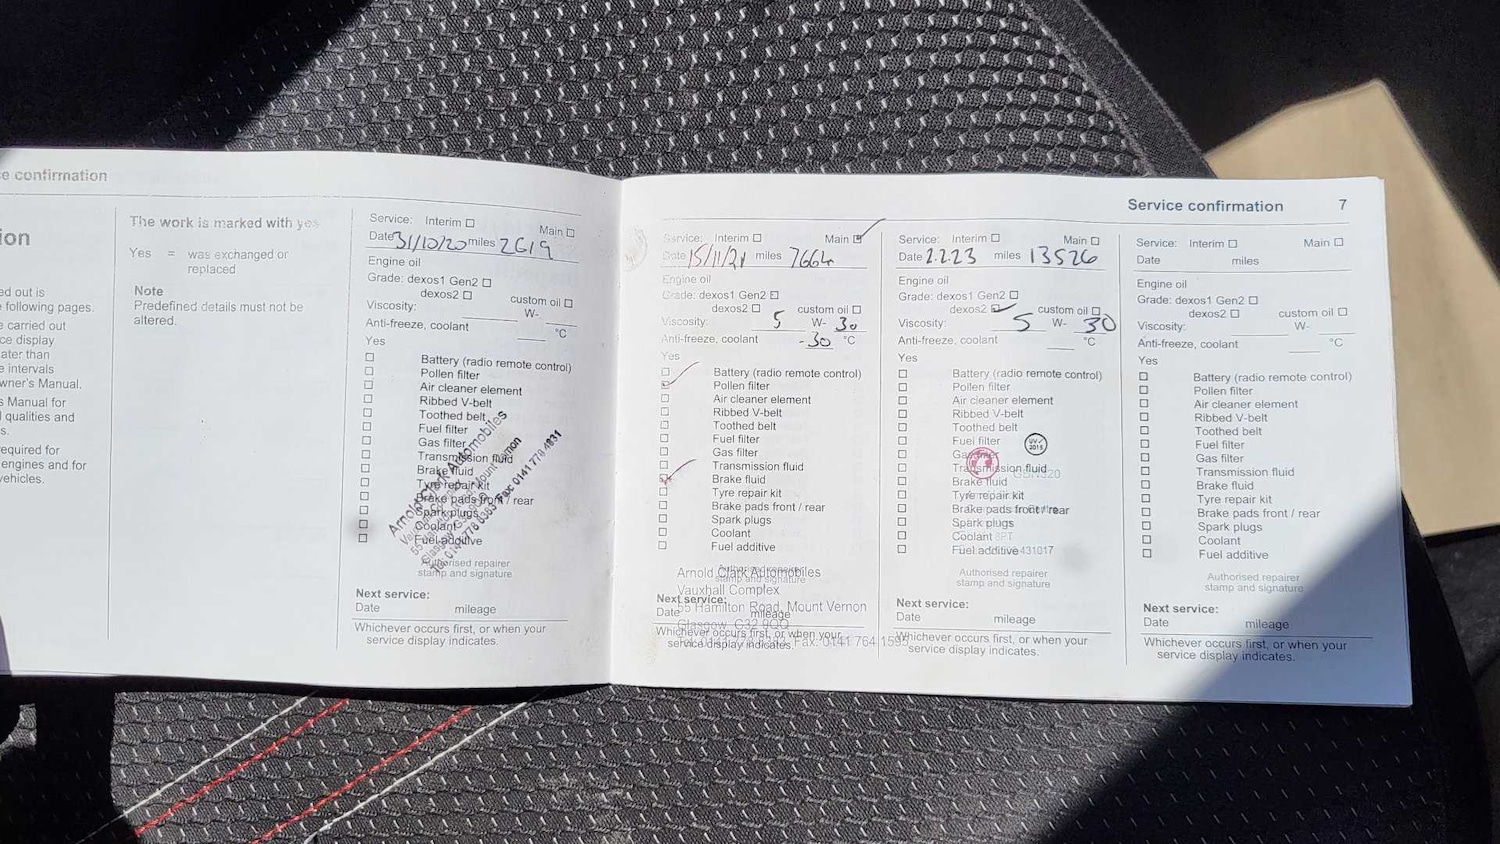 e confirmation
ion
ed out is
following pages.
e carried out
ce display
ater than
e intervals
wner's Manual.
s Manual for
l qualities and
s.
equired for
engines and for
vehicles.
The work is marked with yes
Yes = was exchanged or
replaced
Note
Predefined details must not be
altered.
Service: Interim Main
Date 31/10/20 miles 2619
Engine oil
Grade: dexos1 Gen2
dexos2 custom oil
Viscosity: W-
Anti-freeze, coolant °C
Yes
Battery (radio remote control)
Pollen filter
Air cleaner element
Ribbed V-belt
Toothed belt
Fuel filter
Gas filter
Transmission fluid
Brake fluid
Tyre repair kit
Brake pads front / rear
Spark plugs
Coolant
Fuel additive
Arnold Clark Automobiles
Fax: 0141 778 4831
Authorised repairer
stamp and signature
Next service:
Date mileage
Whichever occurs first, or when your
service display indicates.
Service confirmation 7
Service: Interim Main
Date 15/11/21 miles 7664
Engine oil
Grade: dexos1 Gen2
dexos2 custom oil
Viscosity: 5 W- 30
Anti-freeze, coolant -30 °C
Yes
Battery (radio remote control)
Pollen filter
Air cleaner element
Ribbed V-belt
Toothed belt
Fuel filter
Gas filter
Transmission fluid
Brake fluid
Tyre repair kit
Brake pads front / rear
Spark plugs
Coolant
Fuel additive
Authorised repairer
stamp and signature
Arnold Clark Automobiles
Vauxhall Complex
55 Hamilton Road, Mount Vernon
Glasgow, G32 9QQ
Fax: 0141 764 1595
Next service:
Date mileage
Whichever occurs first, or when your
service display indicates.
Service: Interim Main
Date 1.2.23 miles 13526
Engine oil
Grade: dexos1 Gen2
dexos2 custom oil
Viscosity: 5 W- 30
Anti-freeze, coolant °C
Yes
Battery (radio remote control)
Pollen filter
Air cleaner element
Ribbed V-belt
Toothed belt
Fuel filter
Gas filter
Transmission fluid
Brake fluid
Tyre repair kit
Brake pads front / rear
Spark plugs
Coolant 8PT
Fuel additive 431017
Authorised repairer
stamp and signature
Next service:
Date mileage
Whichever occurs first, or when your
service display indicates.
Service: Interim Main
Date miles
Engine oil
Grade: dexos1 Gen2
dexos2 custom oil
Viscosity: W-
Anti-freeze, coolant °C
Yes
Battery (radio remote control)
Pollen filter
Air cleaner element
Ribbed V-belt
Toothed belt
Fuel filter
Gas filter
Transmission fluid
Brake fluid
Tyre repair kit
Brake pads front / rear
Spark plugs
Coolant
Fuel additive
Authorised repairer
stamp and signature
Next service:
Date mileage
Whichever occurs first, or when your
service display indicates.